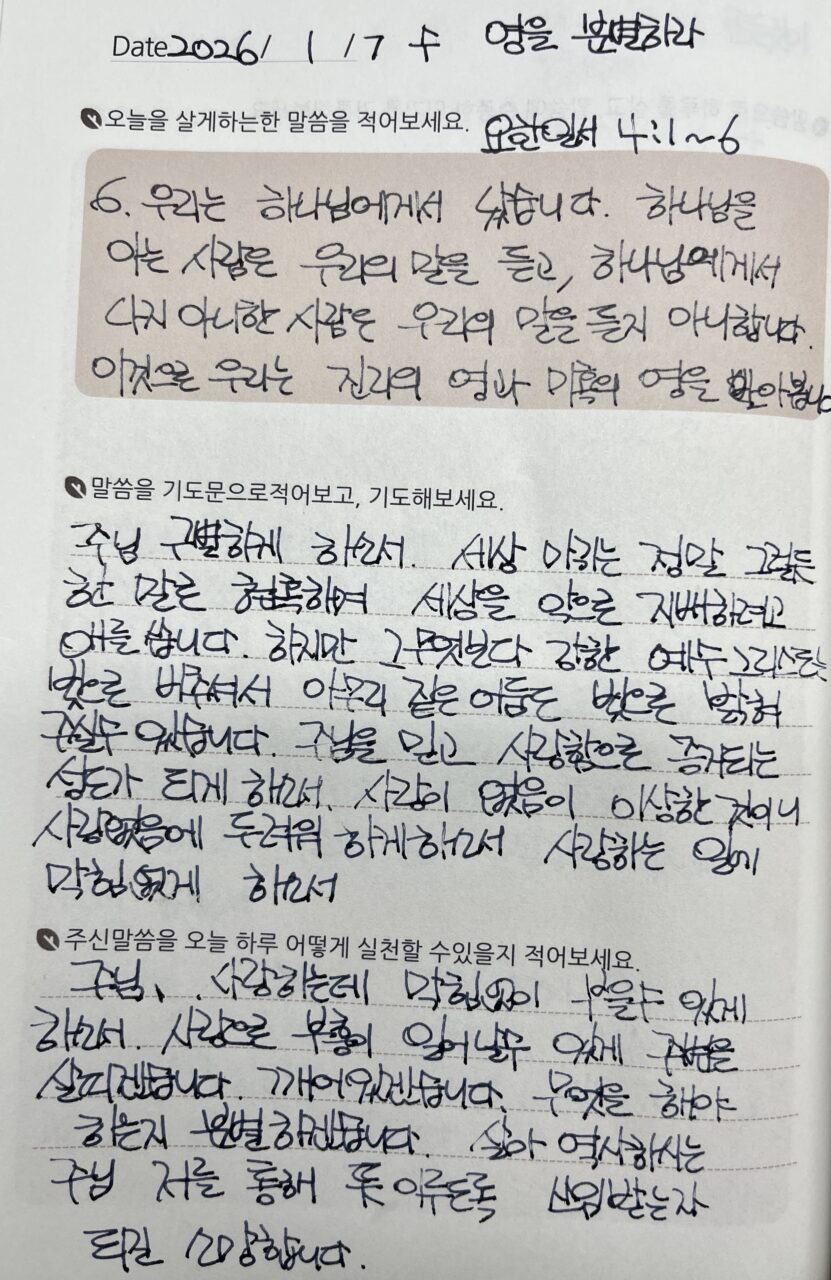 Date 2026/ 1 /7 수 영을 분별하라
오늘을 살게하는한 말씀을 적어보세요. 요한일서 4:1~6
6. 우리는 하나님에게서 났습니다. 하나님을
아는 사람은 우리의 말을 듣고, 하나님에게서
나지 아니한 사람은 우리의 말을 듣지 아니합니다.
이것으로 우리는 진리의 영과 미혹의 영을 알아봅니다
말씀을 기도문으로적어보고, 기도해보세요.
주님 구별하게 하소서. 세상 마귀는 정말 그럴듯
한 말로 현혹하며 세상을 악으로 지배하려고
애를 씁니다. 하지만 그무엇보다 강한 예수그리스도는
빛으로 비추셔서 아무리 짙은 어둠도 빛으로 밝혀
주실수 있습니다. 주님을 믿고 사랑함으로 증거되는
성도가 되게 하소서. 사랑이 없음이 이상한 것이니
사랑없음에 두려워 하게하소서 사랑하는 일에
막힘없게 하소서
주신말씀을 오늘 하루 어떻게 실천할 수있을지 적어보세요.
주님, 사랑하는데 막힘없이 부을수 있게
하소서. 사랑으로 부흥이 일어날수 있게 주변을
살피겠습니다. 깨어있겠습니다. 무엇을 해야
하는지 분별하겠습니다. 살아 역사하시는
주님 저를 통해 뜻 이루도록 쓰임받는자
되길 소망합니다.